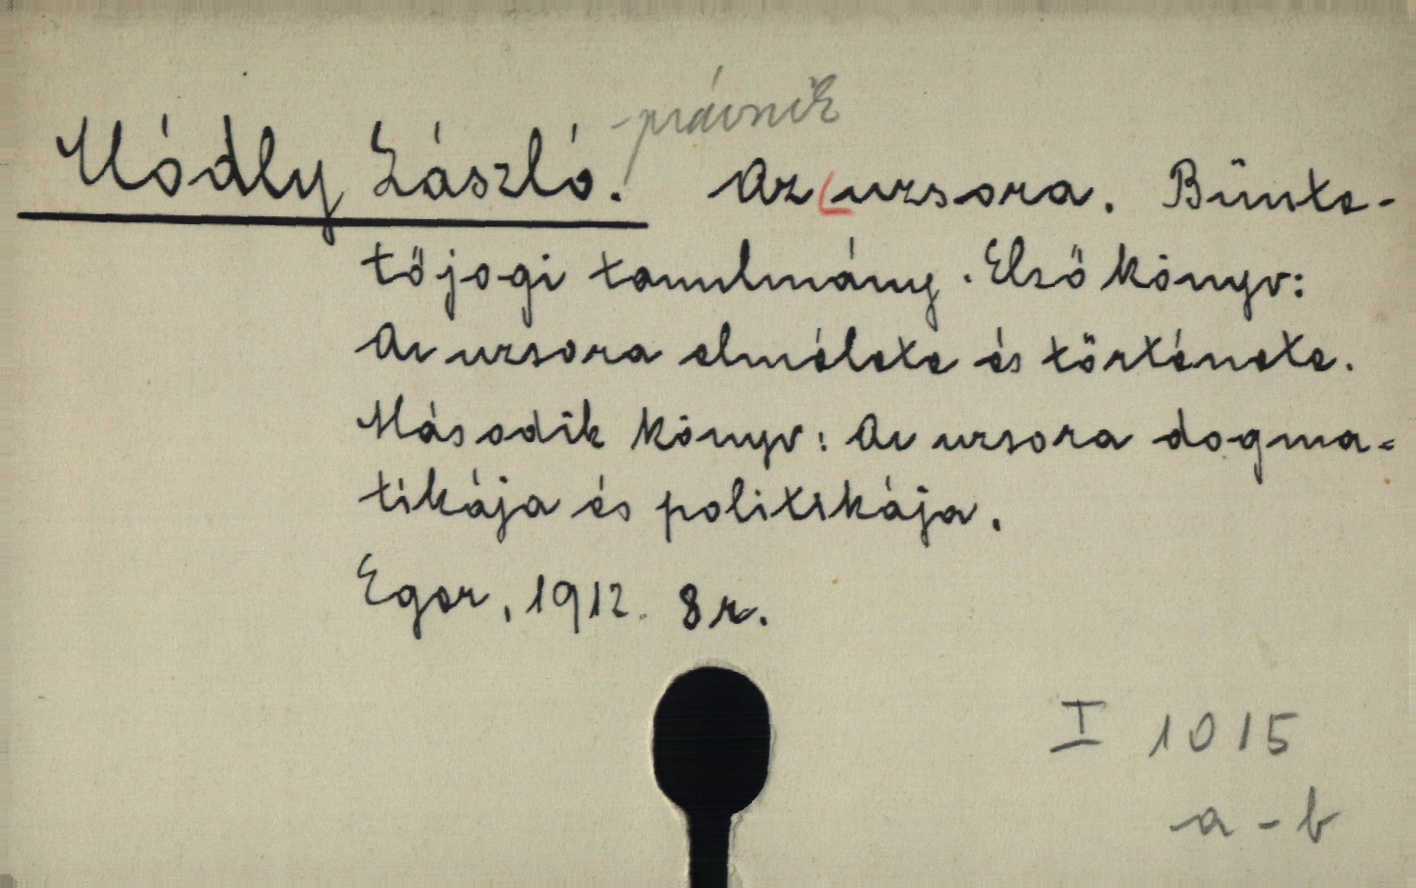 právnik
Módly László. Az uzsora. Bünte-
tőjogi tanulmány. Első könyv:
Az uzsora elmélete és története.
Második könyv: Az uzsora dogma-
tikája és politikája.
Eger, 1912. 8r.
I 1015
a-b